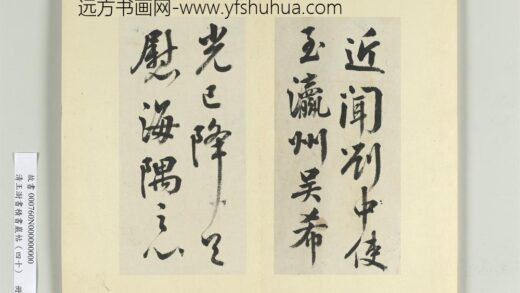 远方书画网- www.yfshuhua.com
近聞劉中使
至瀛州吳希
光已降足
慰海隅之心
故書 000760N000000000
清王澍書積書巖帖(四十) 冊